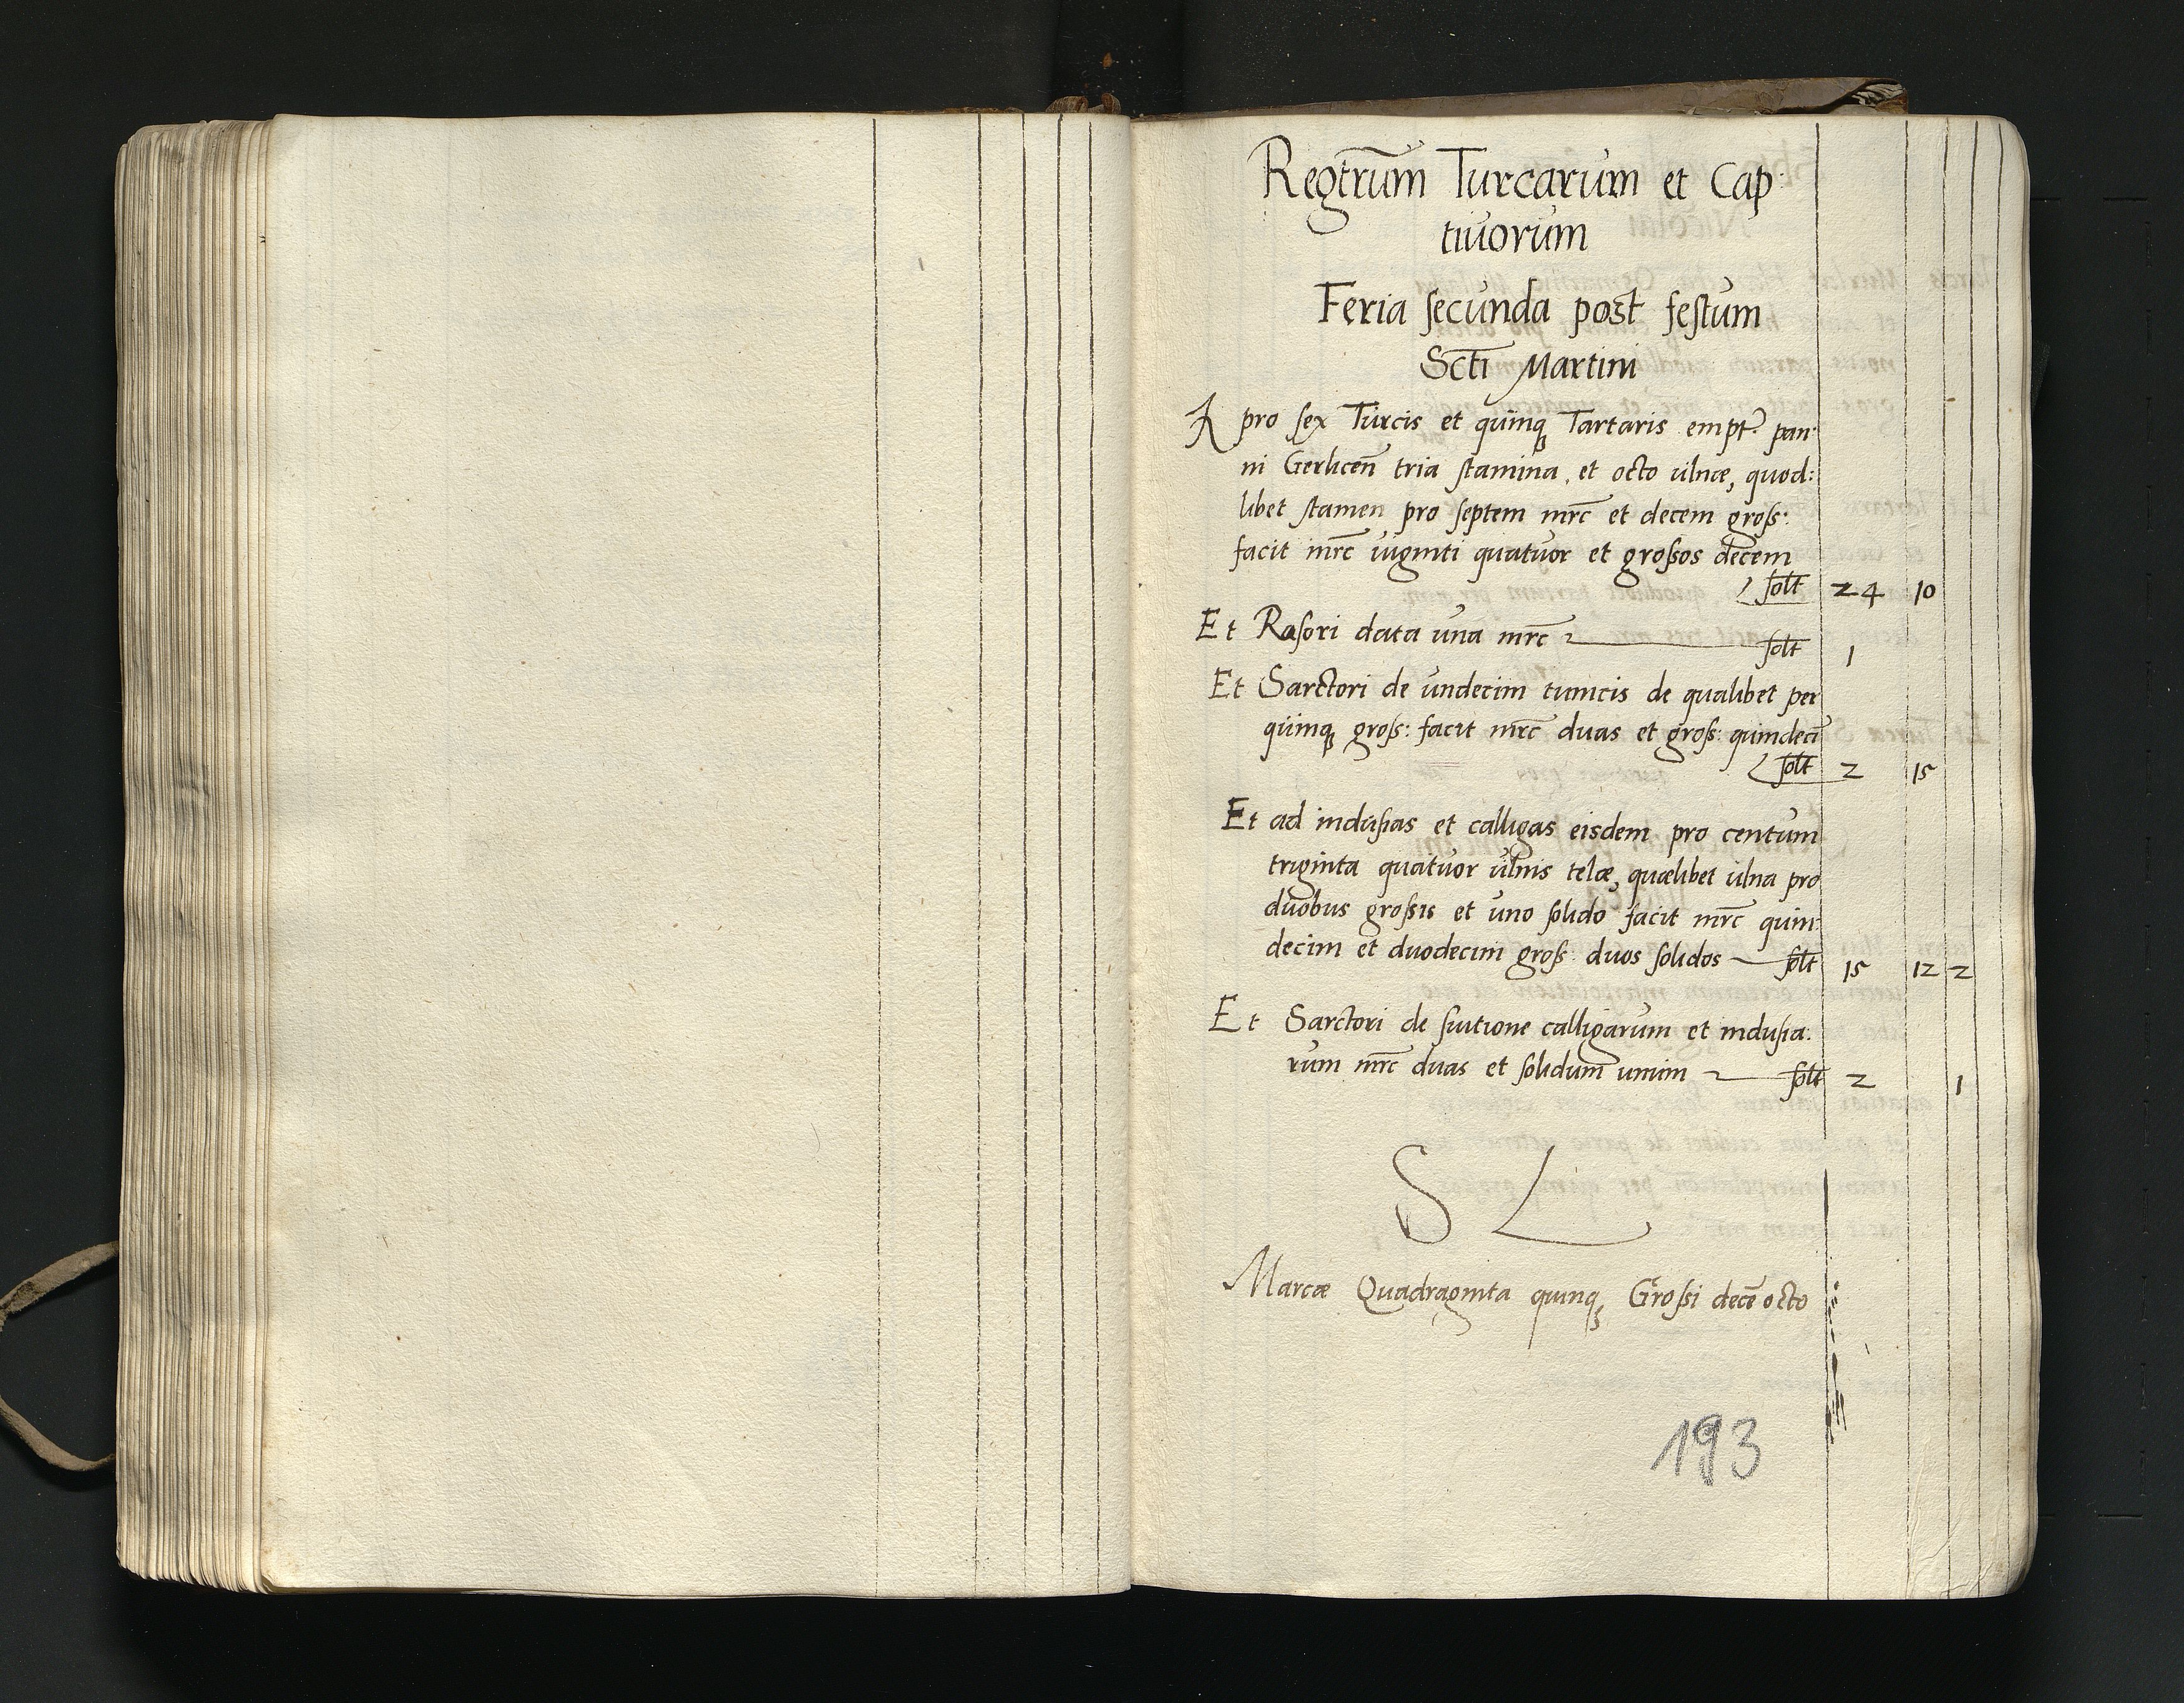 Regtrum Turcarum et Cap
tiuorum
Feria secunda post festum
Scti Martini
A pro sex Turcis et quinq Tartaris empt. pan
ni Gerlicen tria stamina, et octo ulnæ, quod:
libet stamen pro septem mrc et decem gross:
facit mrc uiginti quatuor et grossos decem
solt 24 10
Et Rasori data una mrc solt 1
Et Sarctori de undecim tunicis de qualibet per
quinq gross: facit mrc duas et gross: quindeci
solt 2 15
Et ad indusias et calligas eisdem pro centum
triginta quatuor ulnis telæ, quælibet ulna pro
duobus grossis et uno solido facit mrc quin:
decim et duodecim gross: duos solidos solt 15 12 2
Et Sarctori de suitione calligarum et indusia:
rum mrc duas et solidum unum solt 2 1
S L
Marcæ Quadraginta quinq Grossi dece octo
193